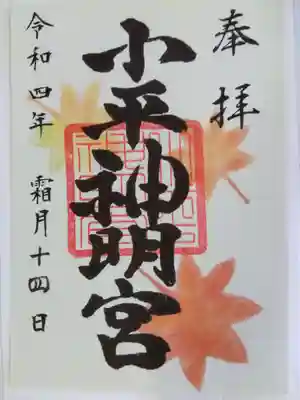 奉拝
小平神明宮
令和四年 霜月十四日